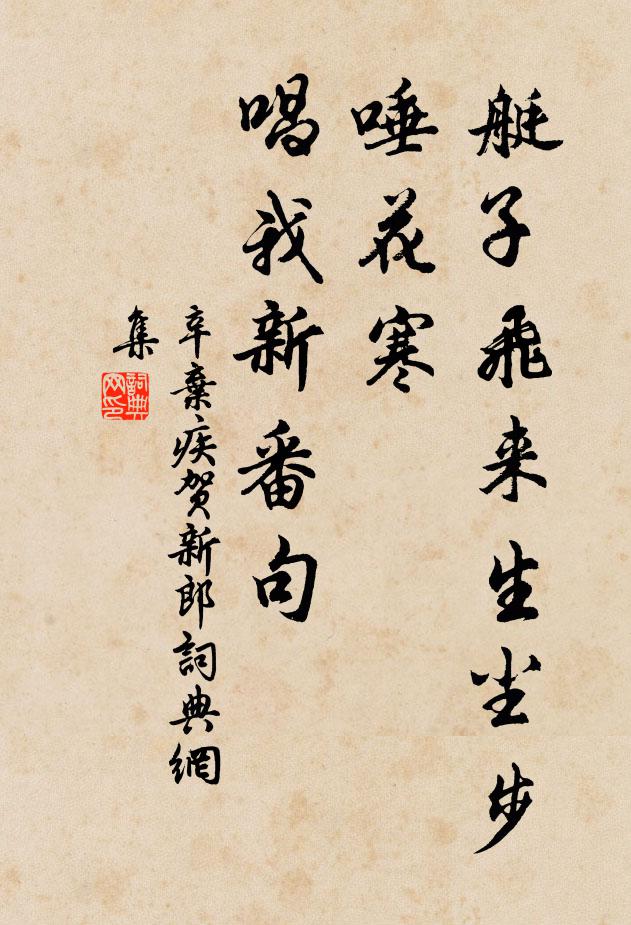 艇子飛来生尘步
唾花寒
唱我新番句
辛棄疾賀新郎詞典網
集
詞典
网印